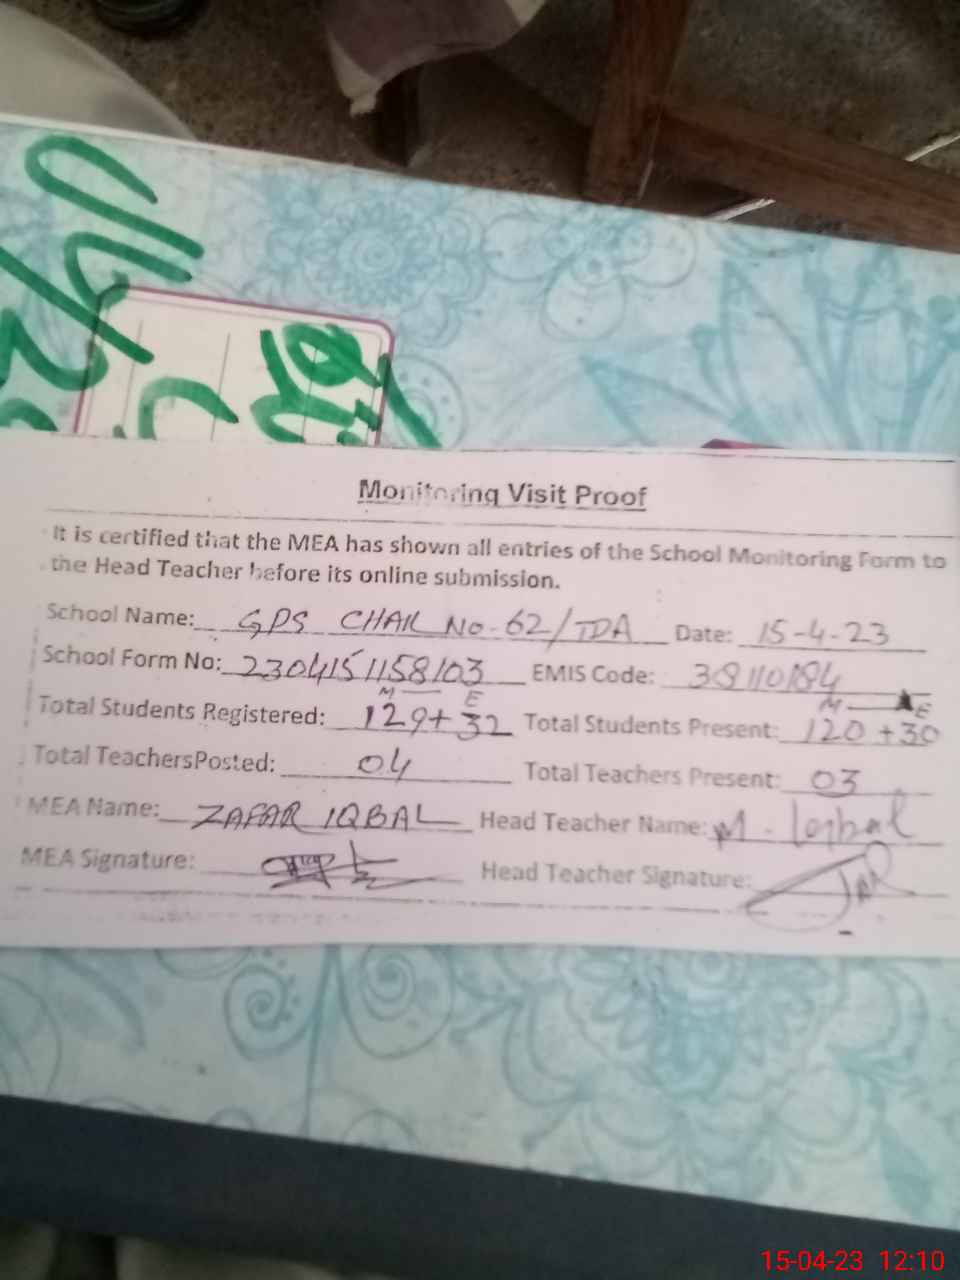 Monitoring Visit Proof
It is certified that the MEA has shown all entries of the School Monitoring Form to
the Head Teacher before its online submission.
School Name: GPS CHAK No-62/TDA Date: 15-4-23
School Form No: 2304151158103 EMIS Code: 38110184
M E M E
Total Students Registered: 129+32 Total Students Present: 120+30
Total TeachersPosted: 04 Total Teachers Present: 03
MEA Name: ZAFAR IQBAL Head Teacher Name: M. Iqbal
MEA Signature: Head Teacher Signature:
15-04-23 12:10